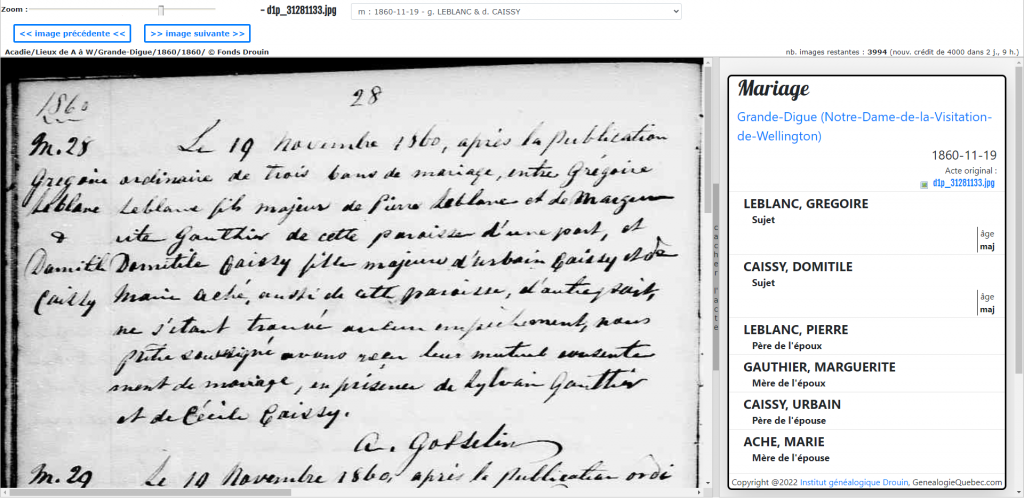 Zoom :
- d1p_31281133.jpg
m : 1860-11-19 - g. LEBLANC & d. CAISSY
<< image précédente >>
>> image suivante >>
Acadie/Lieux de A à W/Grande-Digue/1860/1860/ © Fonds Drouin
nb. images restantes : 3994 (nouv. crédit de 4000 dans 2 j., 9 h.)
1860
28
M. 28
Gregoire
Leblanc
&
Domitile
Caissy
Le 19 Novembre 1860, après la publication
ordinaire de trois bans de mariage, entre Grégoire
Leblanc fils majeur de Pierre Leblanc et de Margue
rite Gauthier de cette paroisse d'une part, et
Domitile Caissy fille majeure d'Urbain Caissy et de
Marie Aché, aussi de cette paroisse, d'autre part,
ne s'étant trouvé aucun empêchement, nous
prêtre soussigné avons reçu leur mutuel consente
ment de mariage, en présence de Sylvain Gauthier
et de Cécile Caissy.
A. Gosselin
M. 29
Le 19 Novembre 1860, après la publication ordi
cacher l'acte
Mariage
Grande-Digue (Notre-Dame-de-la-Visitation-
de-Wellington)
1860-11-19
Acte original :
d1p_31281133.jpg
LEBLANC, GREGOIRE
Sujet
âge
maj
CAISSY, DOMITILE
Sujet
âge
maj
LEBLANC, PIERRE
Père de l'époux
GAUTHIER, MARGUERITE
Mère de l'époux
CAISSY, URBAIN
Père de l'épouse
ACHE, MARIE
Mère de l'épouse
Copyright @2022 Institut généalogique Drouin, GenealogieQuebec.com